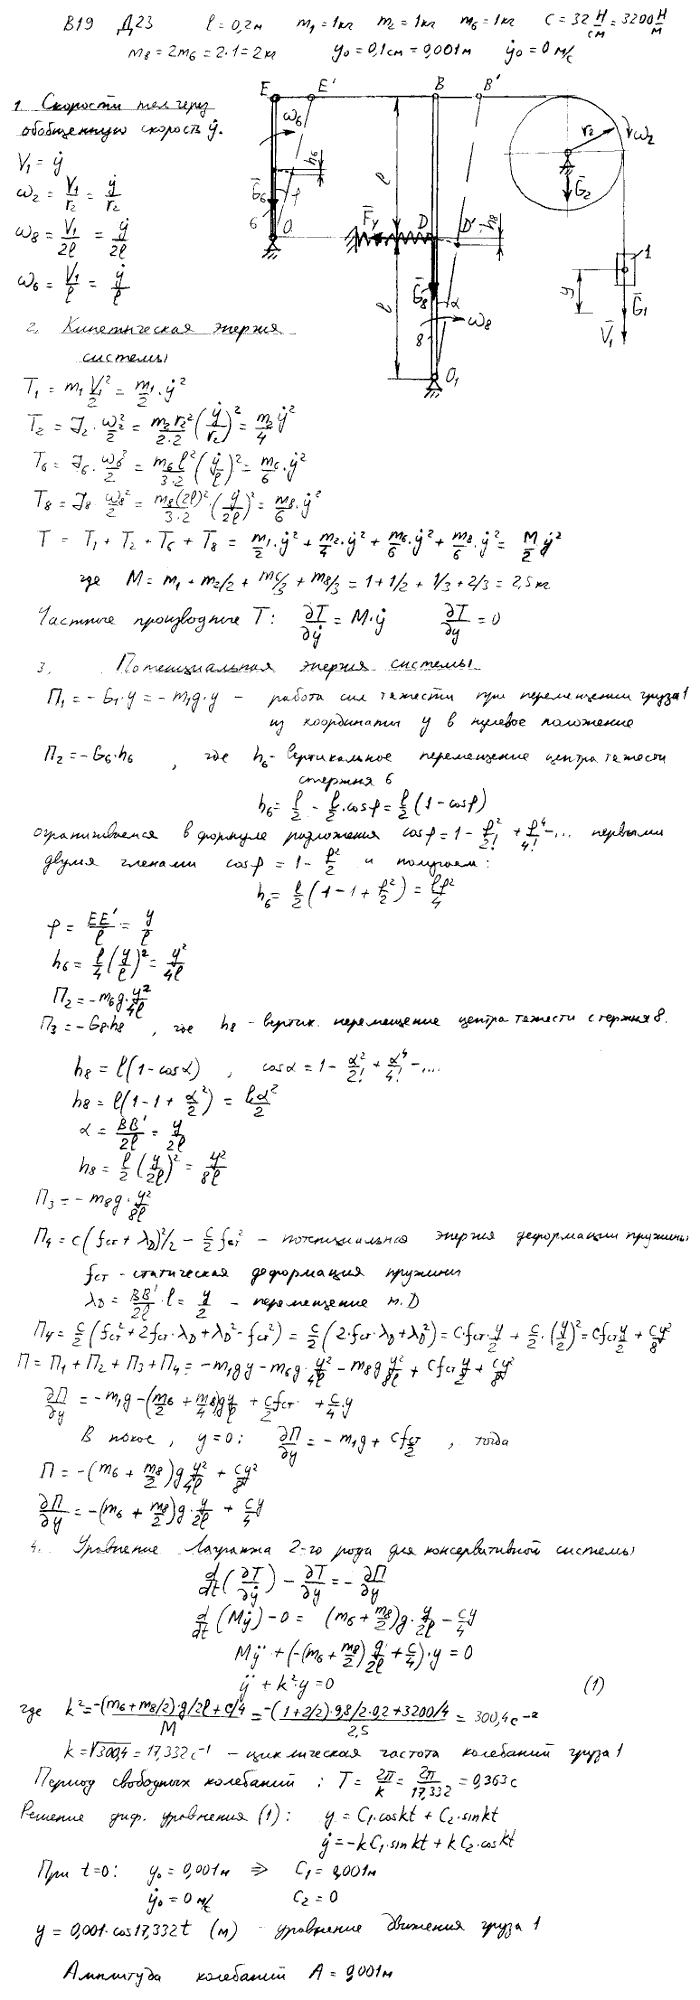 В19 Д23 l = 0,2м m₁ = 1кг m₂ = 1кг m₆ = 1кг C = 32 Н/см = 3200 Н/м
m₈ = 2m₆ = 2·1 = 2кг y₀ = 0,1см = 0,001м ẏ₀ = 0 м/с
1. Скорости тел через
обобщенную скорость ẏ.
V₁ = ẏ
ω₂ = V₁/r₂ = ẏ/r₂
ω₈ = V₁/2l = ẏ/2l
ω₆ = V₁/l = ẏ/l
E E' B B' ω₆ h₆ l r₂ ω₂
G̅₆ φ G̅₂
6 O F̅у D D' h₈ 1
G̅₈ α l y G̅₁
8 ω₈ V̅₁
O₁
2. Кинетическая энергия
системы
T₁ = m₁ V₁²/2 = m₁/2 · ẏ²
T₂ = J₂ · ω₂²/2 = m₂r₂²/2·2 (ẏ/r₂)² = m₂/4 ẏ²
T₆ = J₆ · ω₆²/2 = m₆l²/3·2 (ẏ/l)² = m₆/6 · ẏ²
T₈ = J₈ ω₈²/2 = m₈(2l)²/3·2 · (ẏ/2l)² = m₈/6 · ẏ²
T = T₁ + T₂ + T₆ + T₈ = m₁/2 · ẏ² + m₂/4 · ẏ² + m₆/6 · ẏ² + m₈/6 · ẏ² = M/2 ẏ²
где M = m₁ + m₂/2 + m₆/3 + m₈/3 = 1 + 1/2 + 1/3 + 2/3 = 2,5 кг
Частные производные T: ∂T/∂ẏ = M·ẏ ∂T/∂y = 0
3. Потенциальная энергия системы
П₁ = -G₁·y = -m₁g·y - работа сил тяжести при перемещении груза 1
из координаты y в нулевое положение
П₂ = -G₆·h₆ , где h₆ - вертикальное перемещение центра тяжести
стержня 6
h₆ = l/2 - l/2·cosφ = l/2 (1-cosφ)
ограничиваемся в формуле разложения cosφ = 1 - φ²/2! + φ⁴/4! - ... первыми
двумя членами cosφ = 1 - φ²/2 и получаем:
h₆ = l/2 (1 - 1 + φ²/2) = lφ²/4
φ = EE'/l = y/l
h₆ = l/4 (y/l)² = y²/4l
П₂ = -m₆g·y²/4l
П₃ = -G₈·h₈ , где h₈ - вертик. перемещение центра тяжести стержня 8.
h₈ = l(1-cosα) , cosα = 1 - α²/2! + α⁴/4! - ....
h₈ = l(1 - 1 + α²/2) = lα²/2
α = BB'/2l = y/2l
h₈ = l/2 (y/2l)² = y²/8l
П₃ = -m₈g · y²/8l
П₄ = c(fст + λD)²/2 - c/2 fст² - потенциальная энергия деформации пружины
fст - статическая деформация пружины
λD = BB'/2l · l = y/2 - перемещение т. D
П₄ = c/2 (fст² + 2fст·λD + λD² - fст²) = c/2 (2·fст·λD + λD²) = c·fст·y/2 + c/2·(y/2)² = cfст y/2 + cy²/8
П = П₁ + П₂ + П₃ + П₄ = -m₁gy - m₆g·y²/4l - m₈g y²/8l + cfст y/2 + cy²/8
∂П/∂y = -m₁g - (m₆/2 + m₈/4)gy/l + c/2 fст + c/4·y
В покое, y = 0: ∂П/∂y = -m₁g + cfст/2 , тогда
П = -(m₆ + m₈/2)g y²/4l + cy²/8
∂П/∂y = -(m₆ + m₈/2)g·y/2l + cy/4
4. Уравнение Лагранжа 2-го рода для консервативной системы
d/dt (∂T/∂ẏ) - ∂T/∂y = - ∂П/∂y
d/dt (Mẏ) - 0 = (m₆ + m₈/2)g·y/2l - cy/4
Mÿ + (-(m₆ + m₈/2) g/2l + c/4)·y = 0
ÿ + k²·y = 0 (1)
где k² = -(m₆+m₈/2)·g/2l + c/4 / M = -(1+2/2)·9,8/2·0,2 + 3200/4 / 2,5 = 300,4 с⁻²
k = √300,4 = 17,332 с⁻¹ - циклическая частота колебаний груза 1
Период свободных колебаний: T = 2π/k = 2π/17,332 = 0,363 с
Решение диф. уравнения (1): y = C₁·coskt + C₂·sinkt
ẏ = -kC₁·sinkt + kC₂·coskt
При t=0: y₀ = 0,001м ⇒ C₁ = 0,001м
ẏ₀ = 0 м/с C₂ = 0
y = 0,001·cos17,332t (м) - уравнение движения груза 1
Амплитуда колебаний A = 0,001м